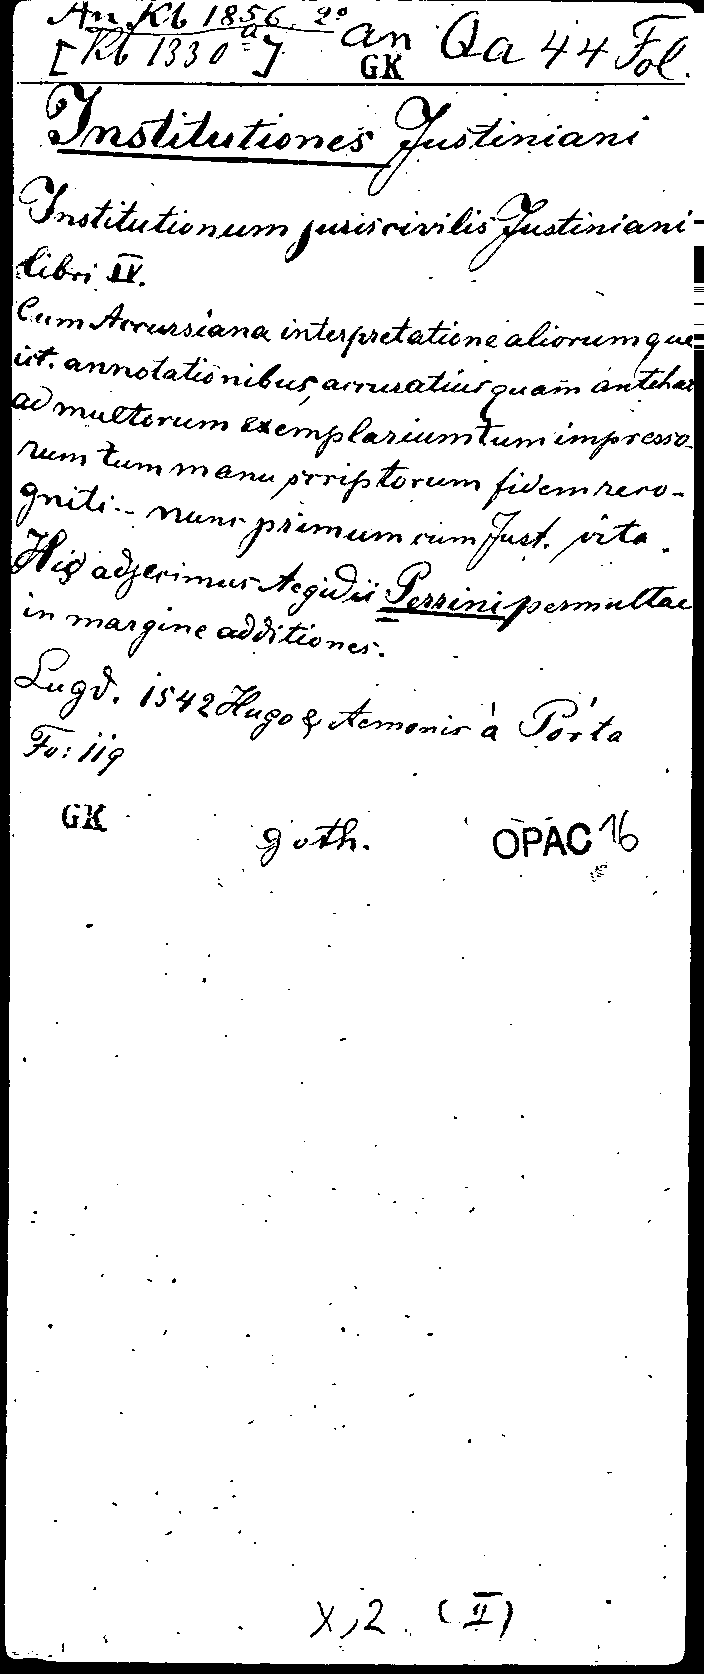 An Kb 1856. 2°
[Kb 1330 a] an Qa 44 Fol.
GK
Institutiones Justiniani
Institutionum juris civilis Justiniani
libri IV.
Cum Accursiana interpretatione aliorumque
ict. annotationibus, accuratius quam antehac
ad multorum exemplarium tum impresso-
rum tum manu scriptorum fidem reco-
gniti.- nunc primum cum Just. vita.
His adjecimus Aegidii Perrini permultae
in margine additiones.
Lugd. 1542 Hugo & Aemonis à Porta
Fo: 119
GK goth. OPAC 16
X, 2 (II)